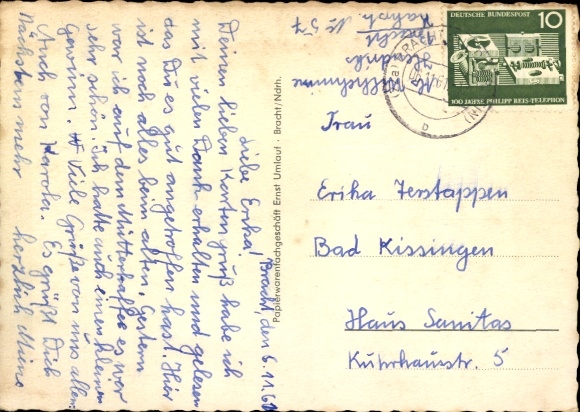 Bracht, den 6.11.61
Liebe Erika!
Deinen lieben Kartengruß habe ich
mit vielen Dank erhalten und gelesen
das Du es gut angetroffen hast. Hier
ist noch alles beim alten. Gestern
war ich auf dem Mütterkaffee es war
sehr schön. Ich hatte auch einen kleinen
Gewinn. Viele Grüße von uns allen
Auch von Karola. Es grüßt Dich
Nächstens mehr herzlich Mine
Papierwarenfachgeschäft Ernst Umlauf · Bracht/Ndrh.
Wilhelmine
Bracht
№ 57
DEUTSCHE BUNDESPOST 10
100 JAHRE PHILIPP REIS-TELEPHON
Frau
Erika Terstappen
Bad Kissingen
Haus Sanitas
Kuhrhausstr. 5